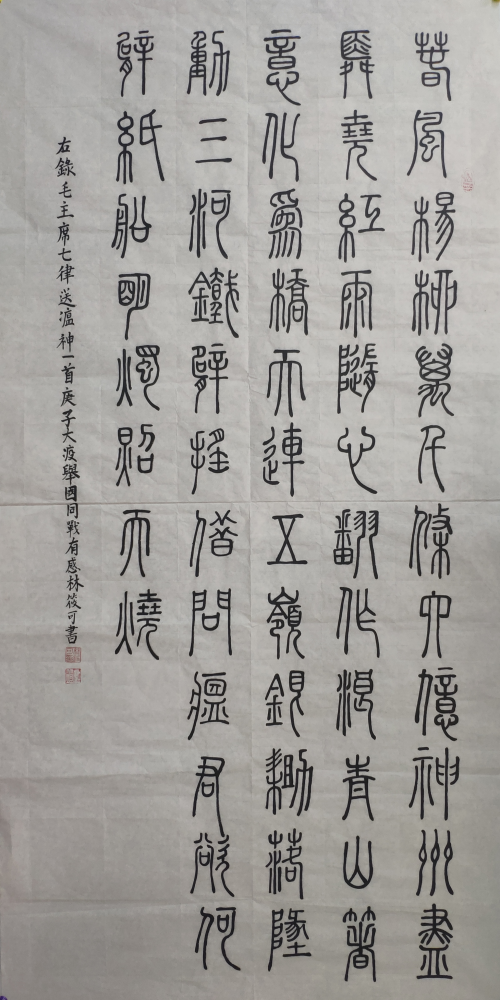 春風楊柳萬千條六億神州盡
舜堯紅雨隨心翻作浪青山著
意化為橋天連五嶺銀鋤落地
動三河鐵臂搖借問瘟君欲何
往紙船明燭照天燒
右錄毛主席七律送瘟神一首庚子大疫舉國同戰有感林筱可書